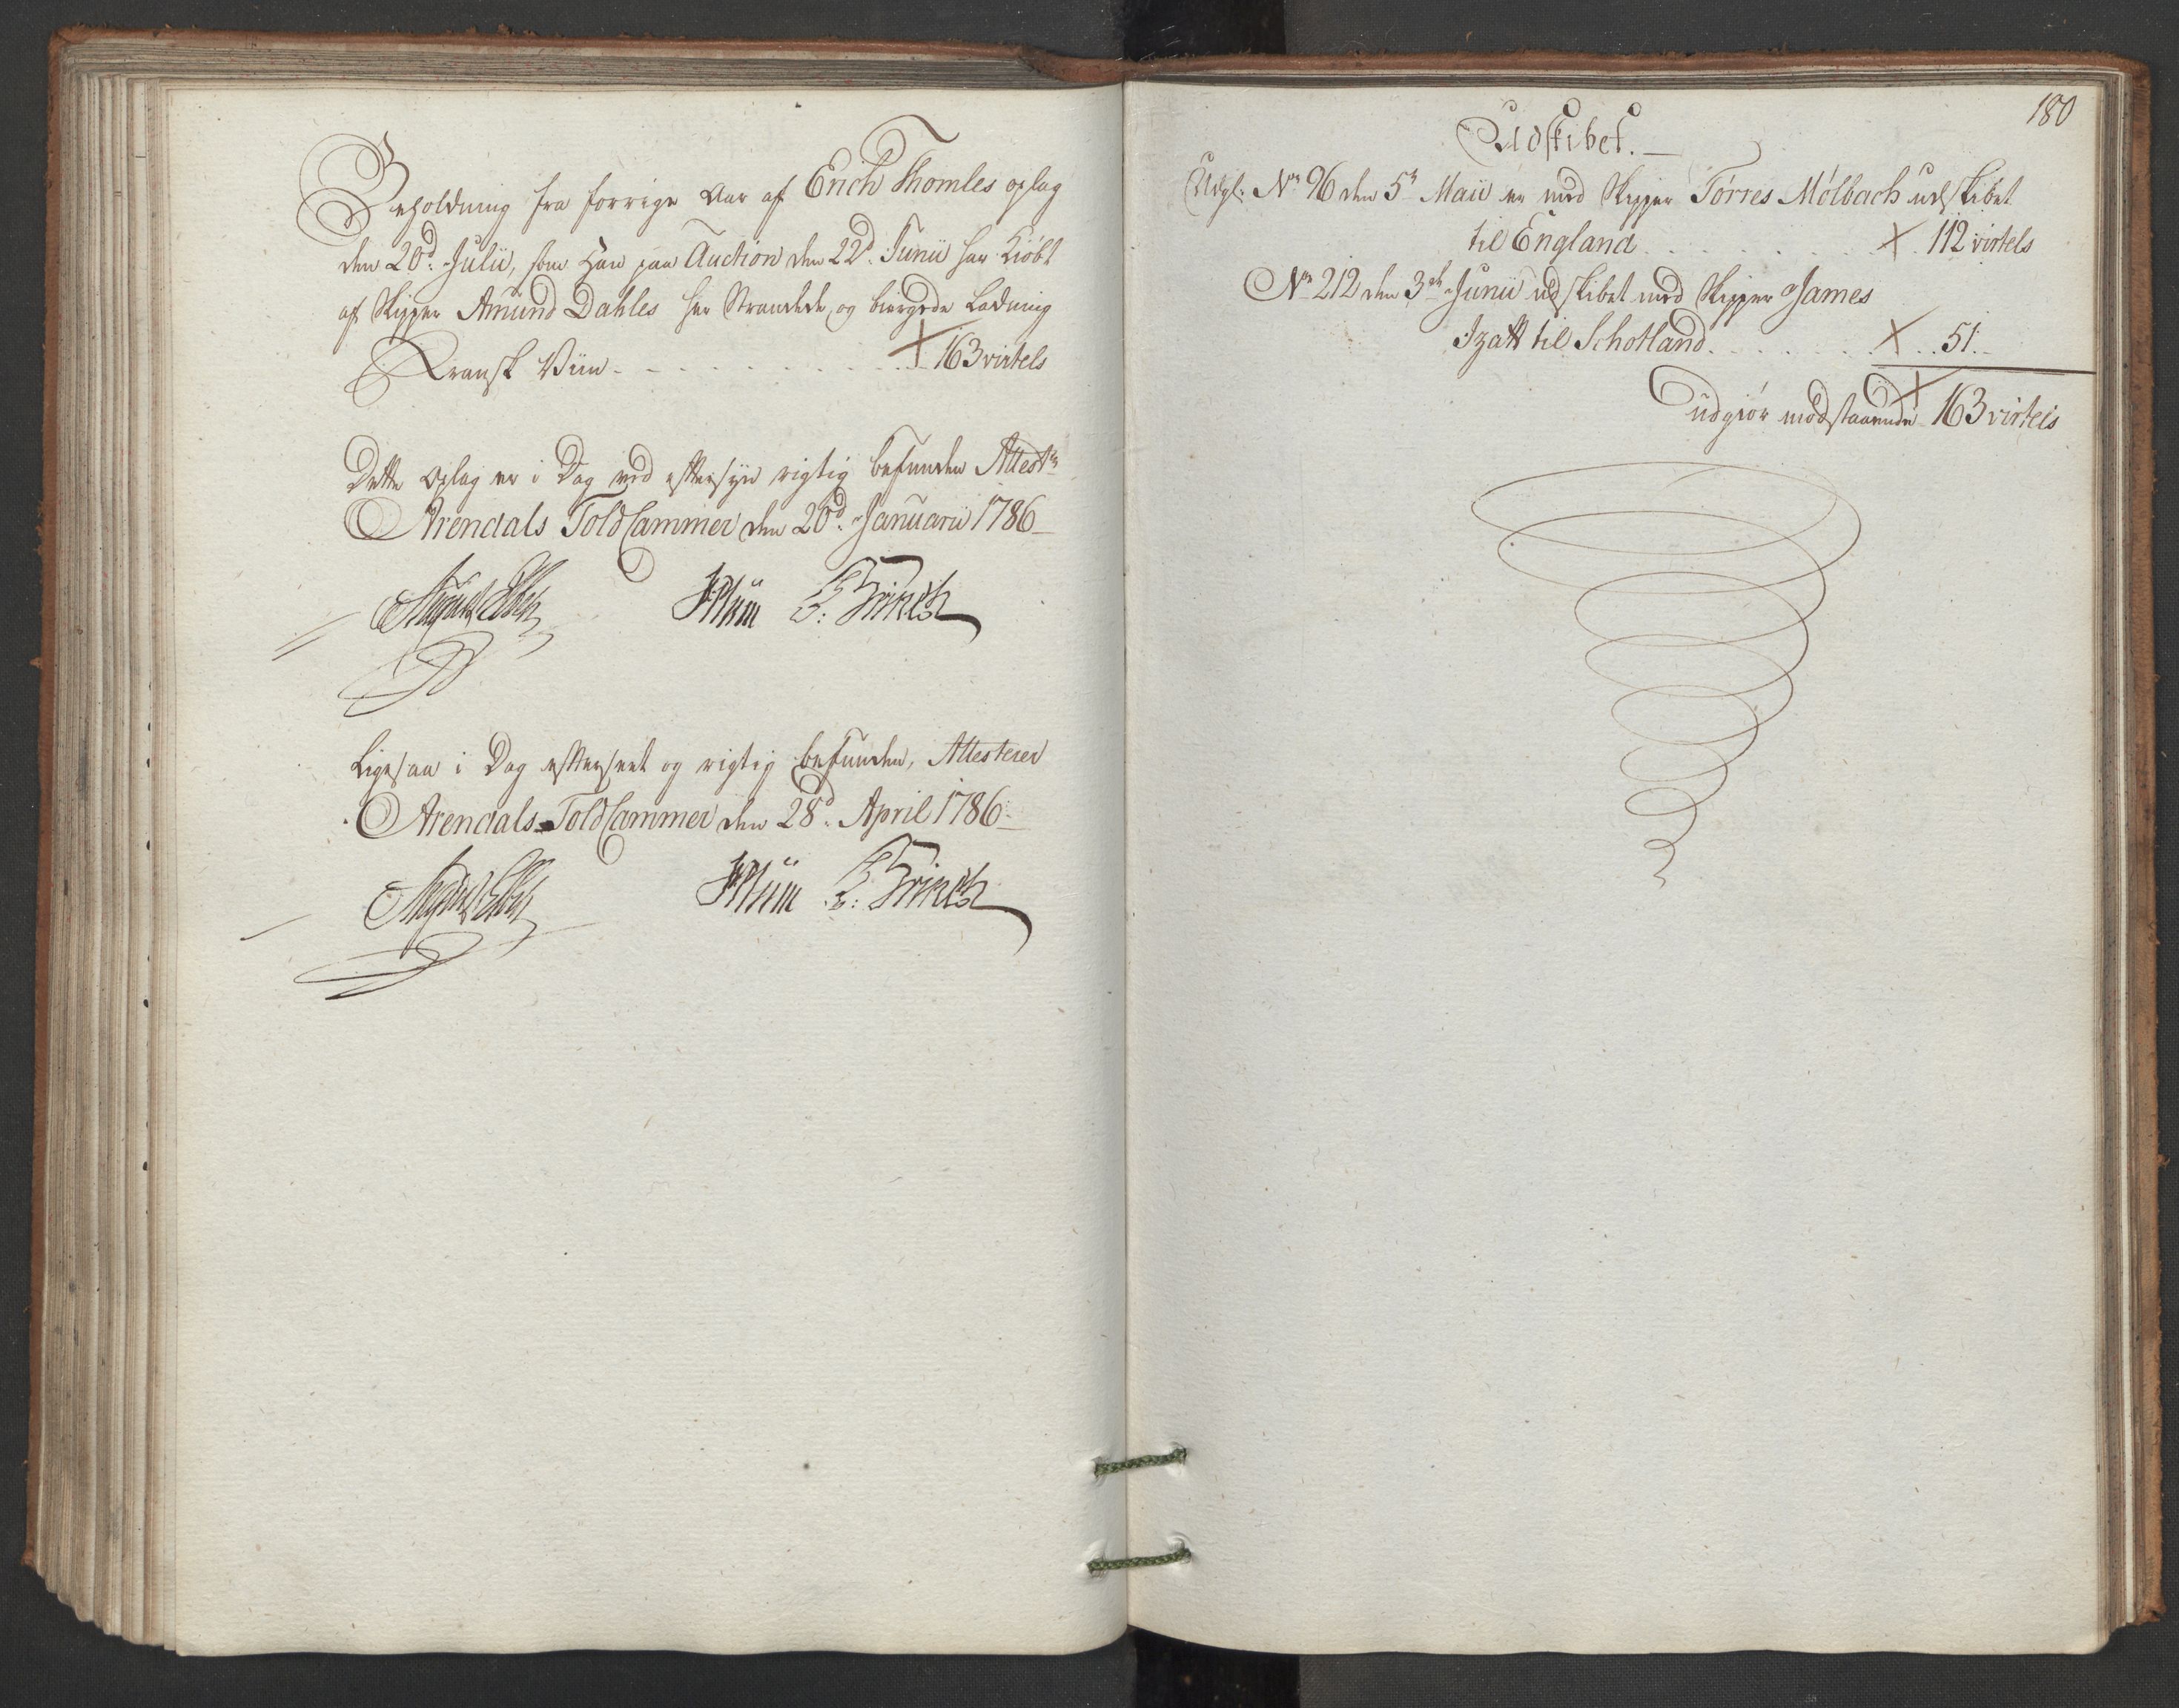 Beholdning fra forrige Aar af Erich Thomles oplag
den 20d: Julii, som Han paa Auction den 22d: Junii har Kiøbt
af Skipper Amund Dahles her Strandede og biergede Ladning
Fransk Viin - - - - - - - 163 virtels
Dette Oplag er i Dag ved eftersyn rigtig befunden Attestr
Arendals ToldCammer den 20d: Januarii 1786
Plüm B: Brinch
Ligesaa i Dag efterseet og rigtig befunden, Attesterer
Arendals ToldCammer den 28d: April 1786:
Plüm B: Brinch
180
Udskibet.
Udgl: No 96 den 5n Maii er med Skipper Tørres Mølbach udskibet
til England . . . . . . . 112 virtels
No 212 den 3de Junii udskibet med Skipper James
Izatt til Schotland . . . . . . . 51.-
udgiør modstaaende 163 virtels